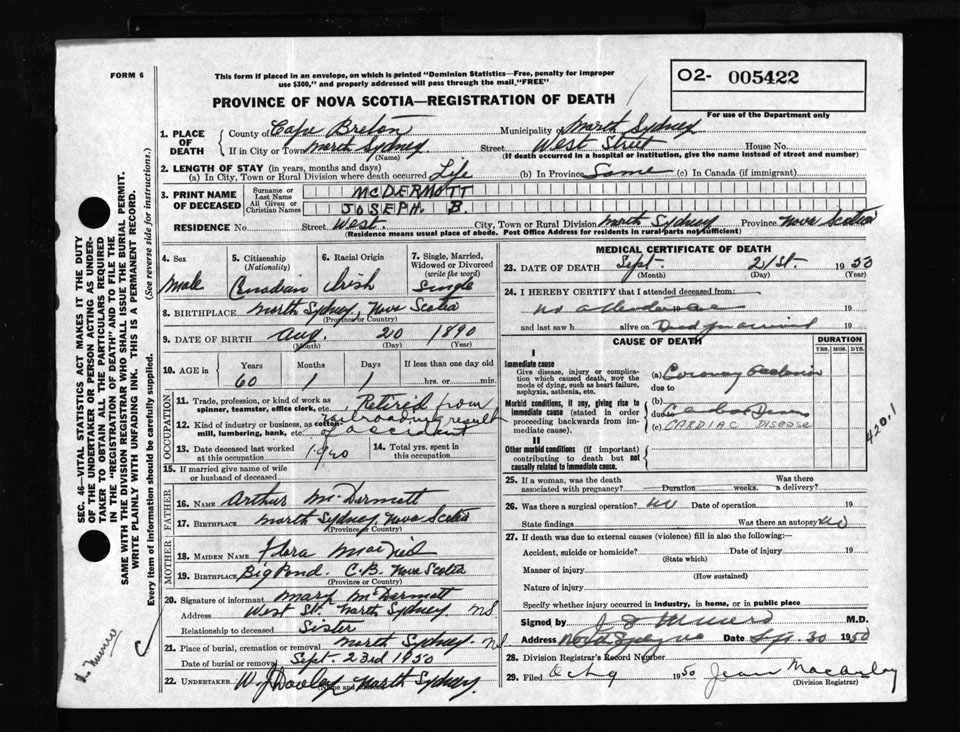 FORM 6
This form if placed in an envelope, on which is printed "Dominion Statistics—Free, penalty for improper
use $300," and properly addressed will pass through the mail "FREE"
O2- 005422
For use of the Department only
PROVINCE OF NOVA SCOTIA—REGISTRATION OF DEATH
1. PLACE OF DEATH
County of Cape Breton Municipality of North Sydney
If in City or Town North Sydney Street West Street House No.
(Name) (If death occurred in a hospital or institution, give the name instead of street and number)
2. LENGTH OF STAY (in years, months and days)
(a) In City, Town or Rural Division where death occurred Life (b) In Province Same (c) In Canada (if immigrant)
3. PRINT NAME OF DECEASED
Surname or Last Name MCDERMOTT
All Given or Christian Names JOSEPH. B.
RESIDENCE No. Street West. City, Town or Rural Division North Sydney Province Nova Scotia
(Residence means usual place of abode. Post Office Address for residents in rural parts not sufficient)
4. Sex Male
5. Citizenship (Nationality) Canadian
6. Racial Origin Irish
7. Single, Married, Widowed or Divorced (write the word) Single
8. BIRTHPLACE North Sydney, Nova Scotia
(Province or Country)
9. DATE OF BIRTH Aug. 20 1890
(Month) (Day) (Year)
10. AGE in Years 60 Months 1 Days 1 If less than one day old
hrs. or min.
OCCUPATION
11. Trade, profession or kind of work as
spinner, teamster, office clerk, etc. Retired from
12. Kind of industry or business, as cotton
mill, lumbering, bank, etc. railroading result
of accident
13. Date deceased last worked at this occupation 1940
14. Total yrs. spent in this occupation
15. If married give name of wife
or husband of deceased
FATHER
16. NAME Arthur McDermott
17. BIRTHPLACE North Sydney, Nova Scotia
(Province or Country)
MOTHER
18. MAIDEN NAME Flora
19. BIRTHPLACE Big Pond. C.B. Nova Scotia
(Province or Country)
20. Signature of informant Mary McDermott
Address West St. North Sydney. NS
Relationship to deceased Sister
21. Place of burial, cremation or removal North Sydney. NS
Date of burial or removal Sept. 23rd 1950
22. UNDERTAKER W. J. Dooley North Sydney.
(Name and Address)
MEDICAL CERTIFICATE OF DEATH
23. DATE OF DEATH Sept. 21st. 1950
(Month) (Day) (Year)
24. I HEREBY CERTIFY that I attended deceased from:
no attendance 19 19
and last saw h alive on 19
CAUSE OF DEATH
DURATION
YRS. MOS. DYS.
I
Immediate cause
Give disease, injury or complica-
tion which caused death, NOT the
mode of dying, such as heart failure,
asphyxia, asthenia, etc.
(a)
due to
Morbid conditions, if any, giving rise to
immediate cause (stated in order
proceeding backwards from im-
mediate cause).
(b)
(c) CARDIAC DISEASE
II
Other morbid conditions (if important)
contributing to death but not
causally related to immediate cause.
4201
25. If a woman, was the death
associated with pregnancy? Duration weeks. Was there a delivery?
26. Was there a surgical operation? No Date of operation 19
State findings Was there an autopsy No
27. If death was due to external causes (violence) fill in also the following:
Accident, suicide or homicide? Date of injury 19
(State which)
Manner of injury
(How sustained)
Nature of injury
Specify whether injury occurred in industry, in home, or in public place
Signed by M.D.
Address Date Sept. 30 1950
28. Division Registrar's Record Number
29. Filed Oct 9 1950 Jean MacAuley
(Division Registrar)
SEC. 46—VITAL STATISTICS ACT MAKES IT THE DUTY
OF THE UNDERTAKER OR PERSON ACTING AS UNDER-
TAKER TO OBTAIN ALL THE PARTICULARS REQUIRED
IN THE "REGISTRATION OF DEATH" AND TO FILE THE
SAME WITH THE DIVISION REGISTRAR WHO SHALL ISSUE THE BURIAL PERMIT.
WRITE PLAINLY WITH UNFADING INK. THIS IS A PERMANENT RECORD.
Every item of information should be carefully supplied. (See reverse side for instructions.)